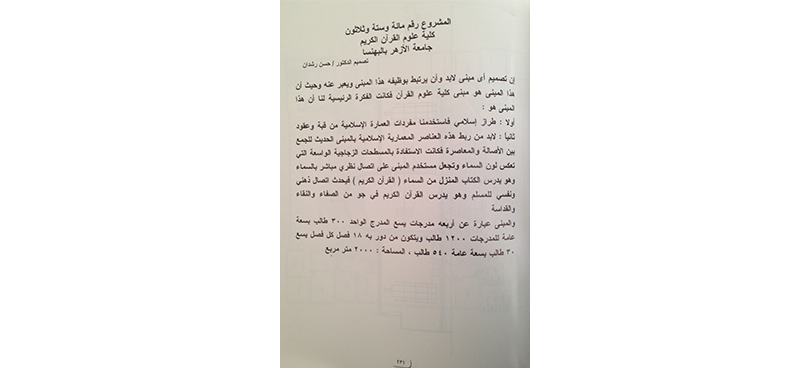 المشروع رقم مائة وستة وثلاثون
كلية علوم القرآن الكريم
جامعة الأزهر بالبهنسا
تصميم الدكتور / حسن رشدان
إن تصميم أى مبنى لابد وأن يرتبط بوظيفه هذا المبنى ويعبر عنه وحيث أن
هذا المبنى هو مبنى كلية علوم القرآن فكانت الفكرة الرئيسية لنا أن هذا
المبنى هو :
أولا : طراز إسلامي فاستخدمنا مفردات العمارة الإسلامية من قبة وعقود
ثانياً : لابد من ربط هذه العناصر المعمارية الإسلامية بالمبنى الحديث للجمع
بين الأصالة والمعاصرة فكانت الاستفادة بالمسطحات الزجاجية الواسعة التي
تعكس لون السماء وتجعل مستخدم المبنى على اتصال نظري مباشر بالسماء
وهو يدرس الكتاب المنزل من السماء ( القرآن الكريم ) فيحدث اتصال ذهني
ونفسي للمسلم وهو يدرس القرآن الكريم في جو من الصفاء والنقاء
والقداسة
والمبنى عبارة عن أربعه مدرجات يسع المدرج الواحد ٣٠٠ طالب بسعة
عامة للمدرجات ١٢٠٠ طالب ويتكون من دور به ١٨ فصل كل فصل يسع
٣٠ طالب بسعة عامة ٥٤٠ طالب ، المساحة : ٢٠٠٠ متر مربع
٢٣١